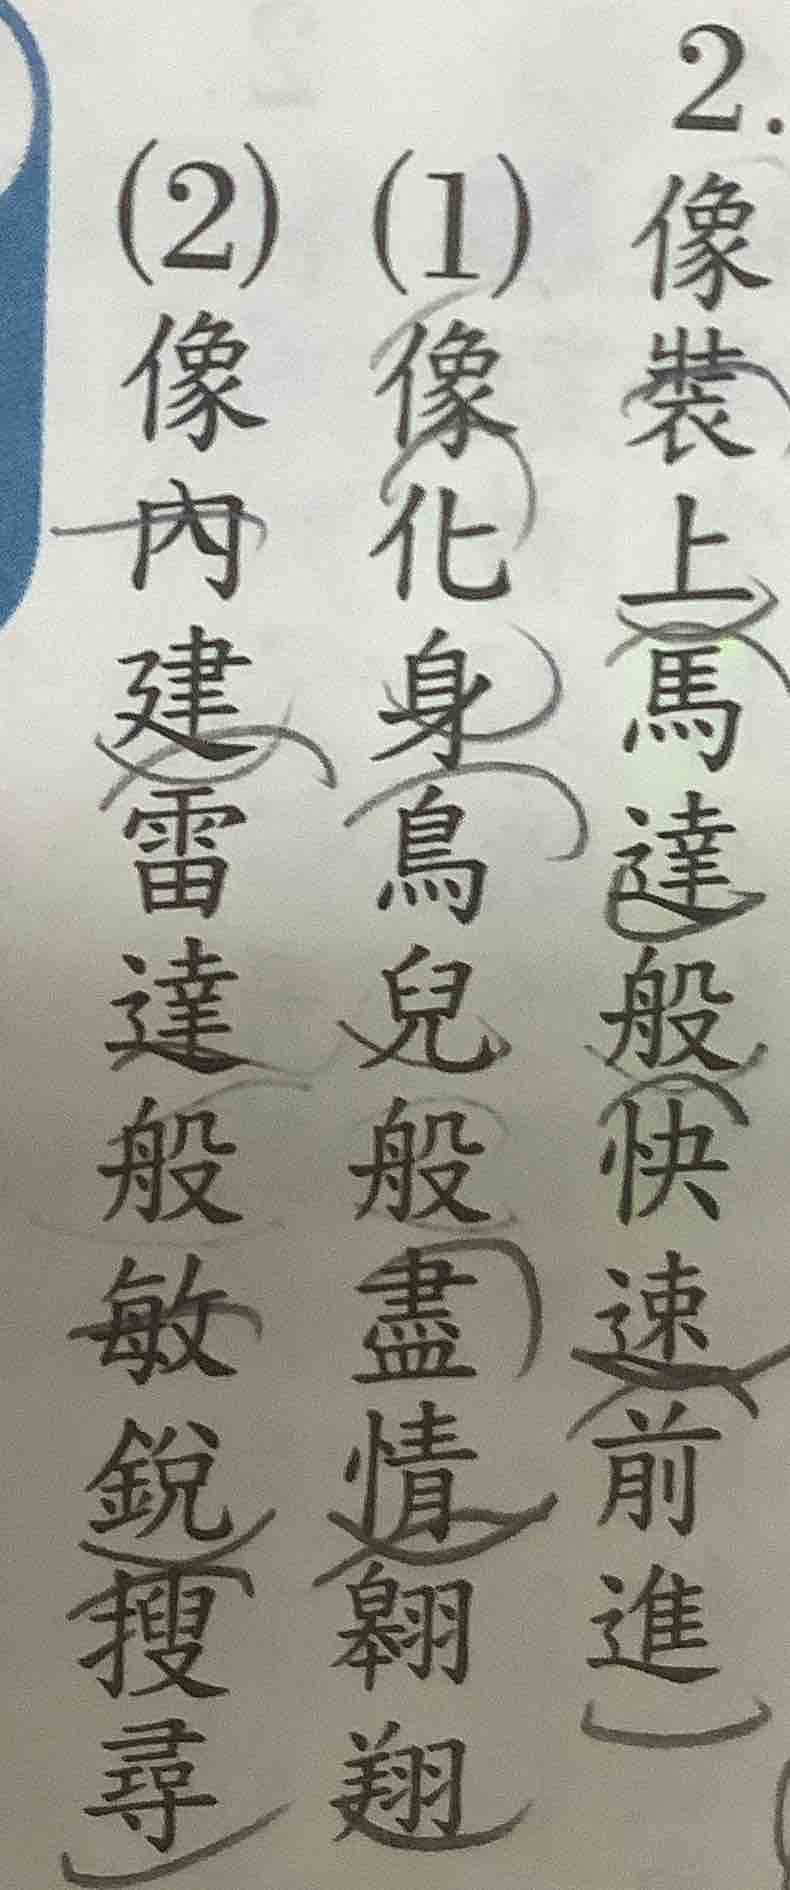 2.像裝上馬達般快速前進
(1)像化身鳥兒般盡情翱翔
(2)像內建雷達般敏銳搜尋